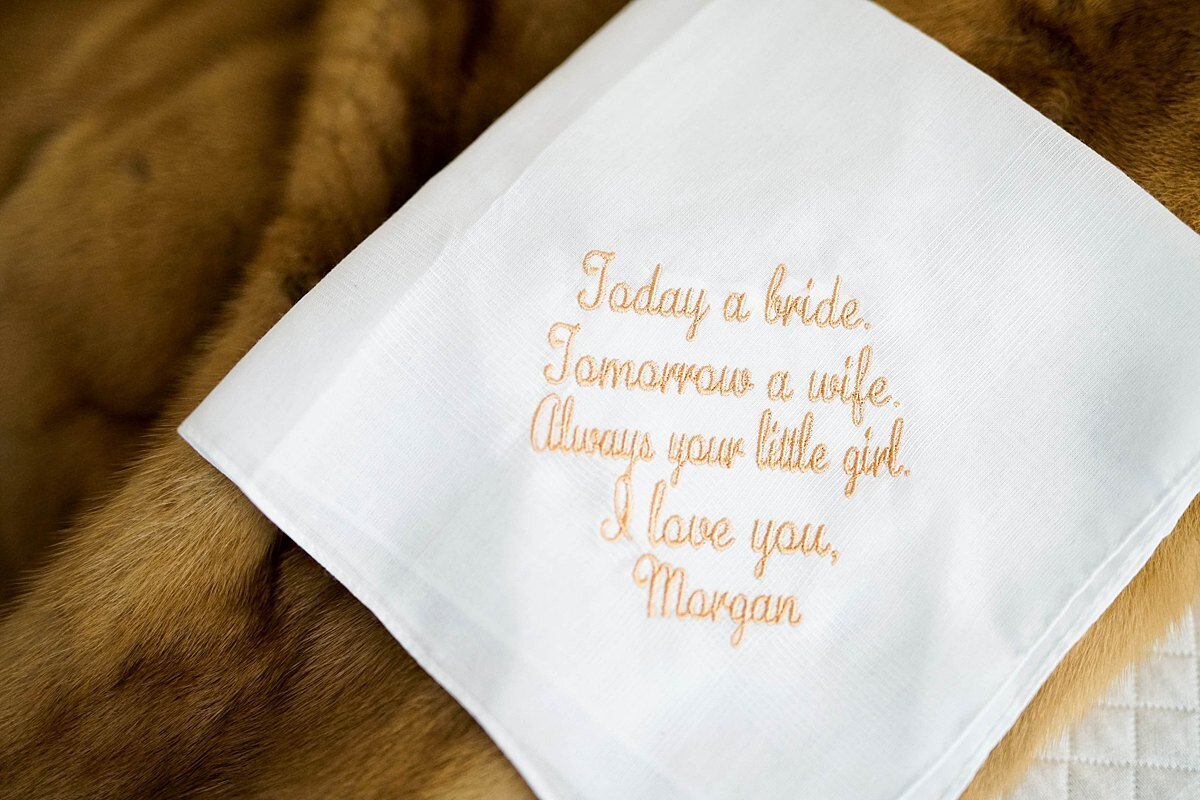 Today a bride.
Tomorrow a wife.
Always your little girl.
I love you,
Morgan